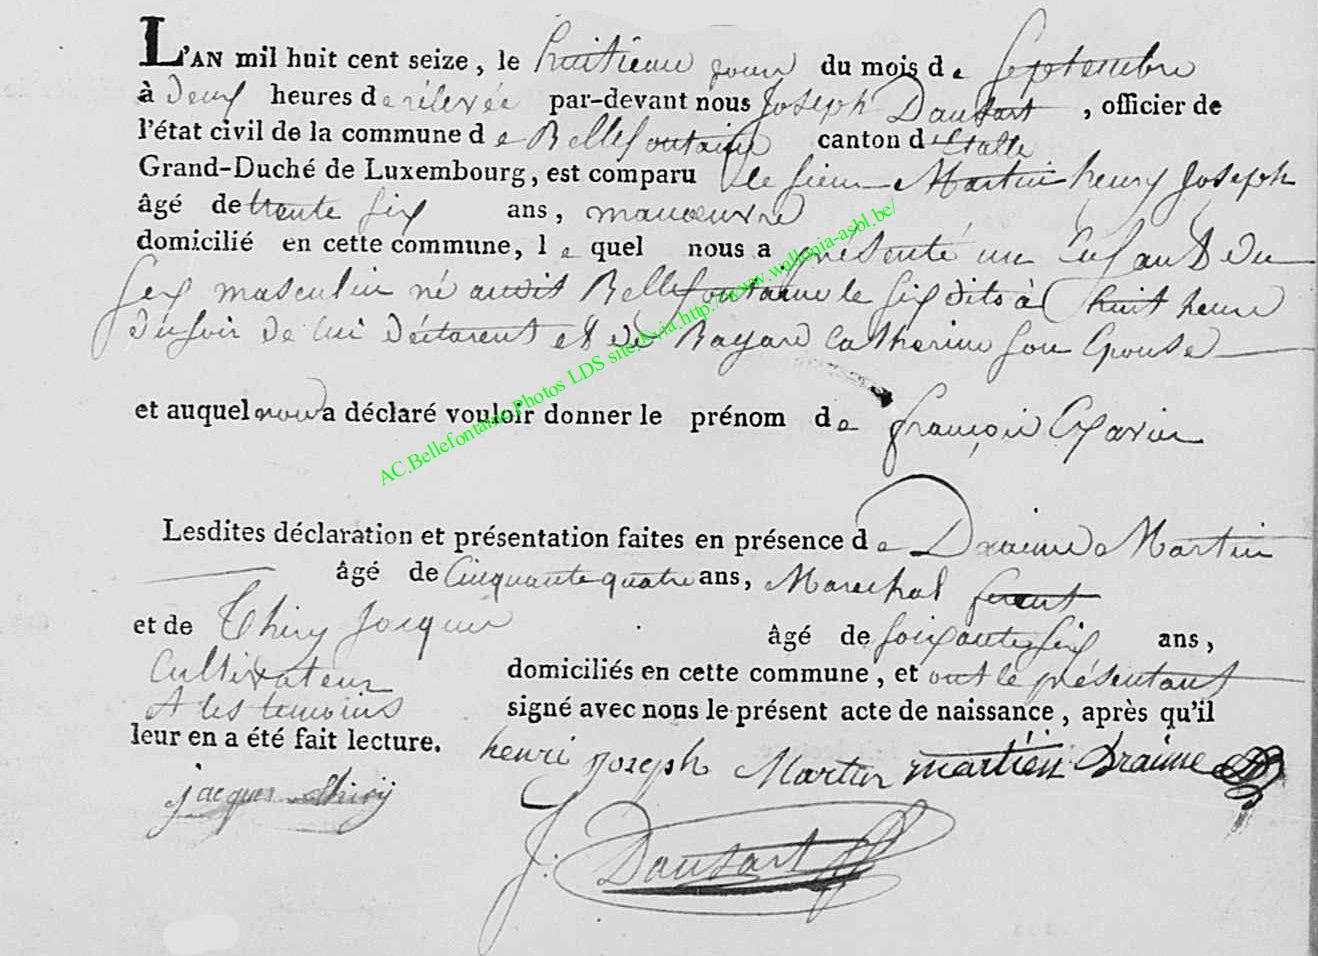 L'AN mil huit cent seize, le huitieme jour du mois de Septembre
à deux heures de relevée par-devant nous Joseph Dautart, officier de
l'état civil de la commune de Bellefontaine canton d'Etalle
Grand-Duché de Luxembourg, est comparu le sieur Martin henry Joseph
âgé de trente six ans, manœuvre
domicilié en cette commune, le quel nous a présenté un Enfant du
sex masculin né audit Bellefontaine le six dito à huit heure
du soir de lui déclarent et de Bayard Catherine son Epouse
et auquel nous a déclaré vouloir donner le prénom de françois Xavier
AC.Bellefontaine.Photos LDS sites.via.http://www.wallonia-asbl.be/
Lesdites déclaration et présentation faites en présence de Draime Martin
âgé de Cinquante quatre ans, Marechal ferent
et de Thiry Jacques âgé de soixante six ans,
Cultivateur domiciliés en cette commune, et ont le présentant
et les temoins signé avec nous le présent acte de naissance, après qu'il
leur en a été fait lecture. henri joseph Martin martin Draime
jacques thiry
J. Dautart